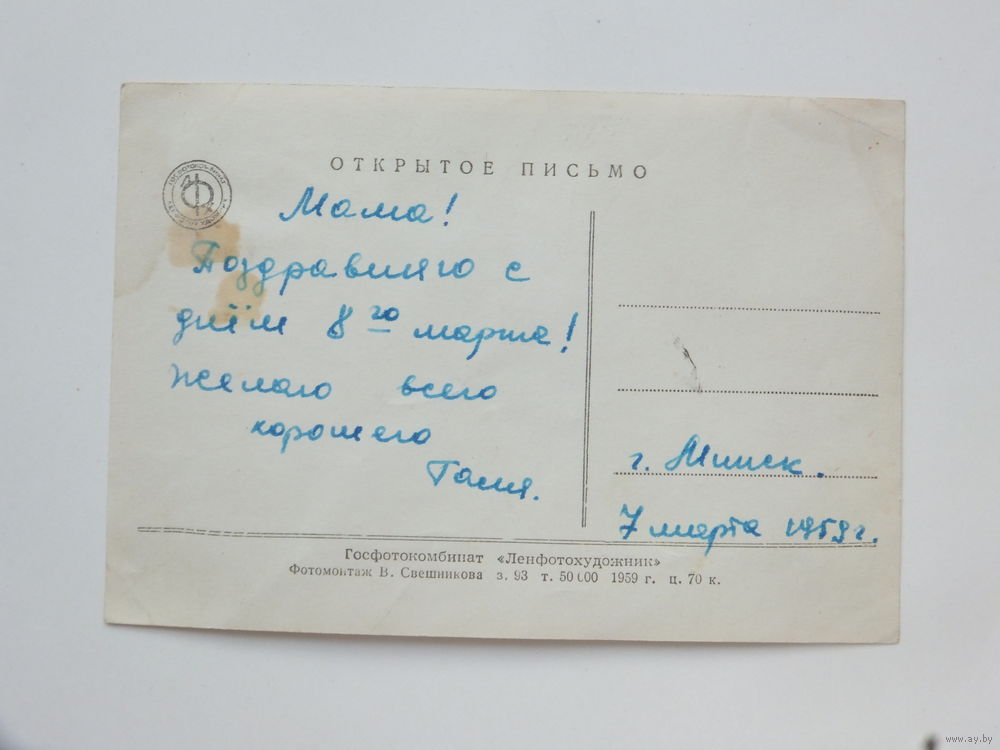 ОТКРЫТОЕ ПИСЬМО
Мама!
Поздравляю с
днём 8го марта!
Желаю всего
хорошего
Таня.
г. Минск.
7 марта 1959 г.
Госфотокомбинат «Ленфотохудожник»
Фотомонтаж В. Свешникова з. 93 т. 50000 1959 г. ц. 70 к.
www.ay.by